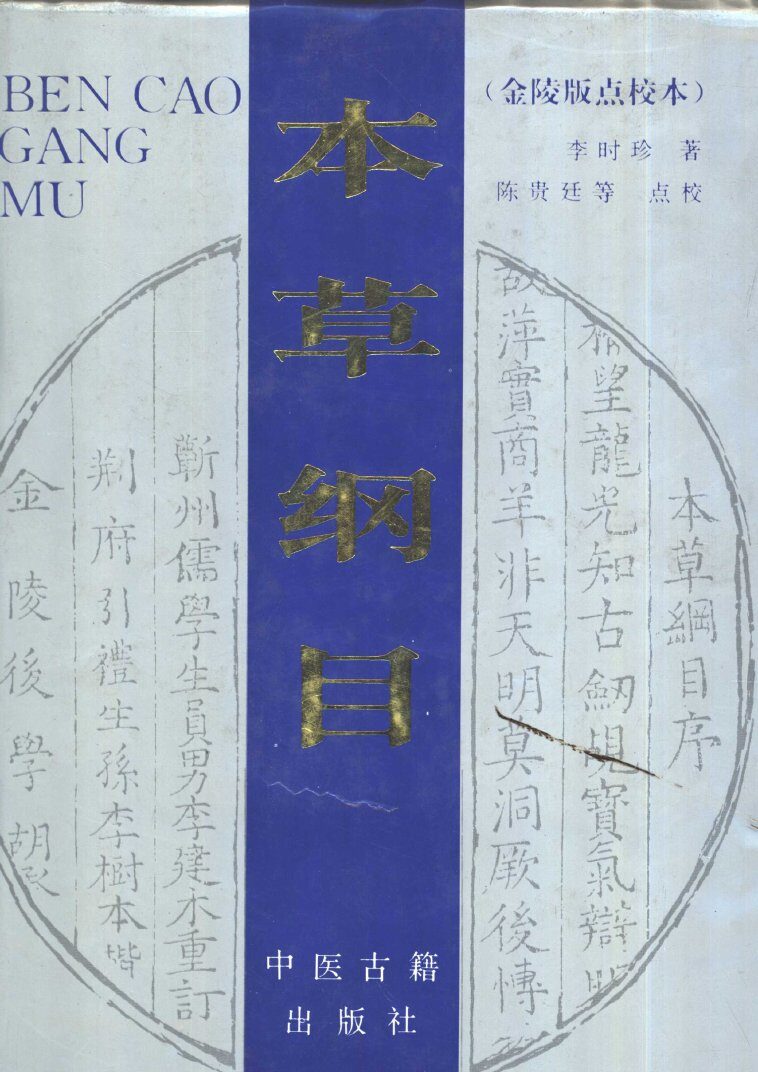 BEN CAO
GANG
MU
本草纲目
(金陵版点校本)
李时珍 著
陈贵廷等 点校
本草綱目序
望龍光知古劒覘寶氣辯
故萍實商羊非天明莫洞厥後博
蘄州儒學生員男李建木重訂
荆府引禮生孫李樹本楷
金陵後學胡
中医古籍
出版社